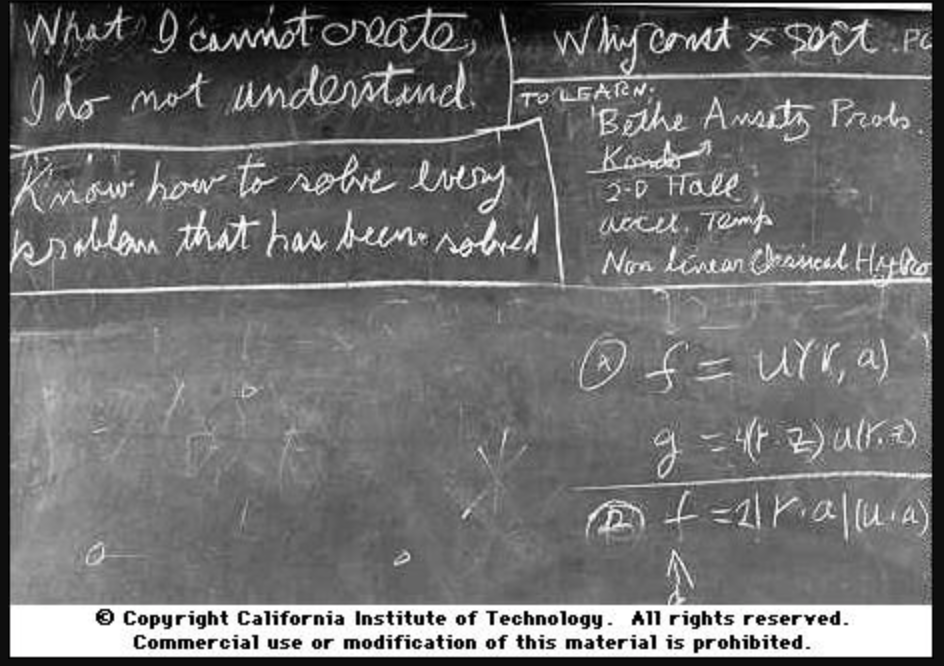 What I cannot create,
I do not understand.
Know how to solve every
problem that has been solved
Why const × sort . PO
TO LEARN:
Bethe Ansatz Probs.
Kondo
2-D Hall
accel. Temp
Non Linear Classical Hydro
Ⓐ f = u(r, a)
g = 4(r·z) u(r·z)
f = 2|r·a|(u·a)
© Copyright California Institute of Technology. All rights reserved.
Commercial use or modification of this material is prohibited.